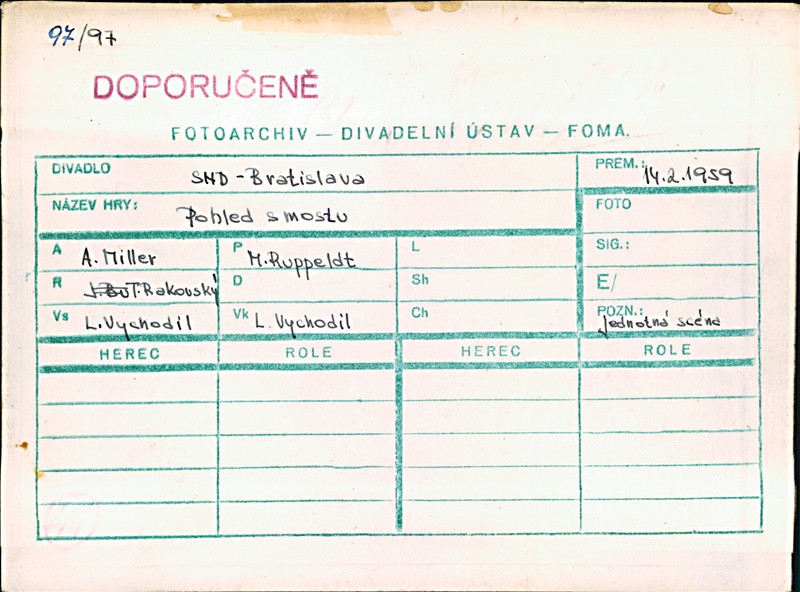 97/97
DOPORUČENĚ
FOTOARCHIV — DIVADELNÍ ÚSTAV — FOMA.
DIVADLO SND - Bratislava PREM.: 14.2.1959
NÁZEV HRY: Pohled s mostu FOTO
A A. Miller P M. Ruppeldt L SIG.:
R T. Rakovský D Sh E/
Vs L. Vychodil Vk L. Vychodil Ch POZN.: jednotná scéna
HEREC ROLE HEREC ROLE